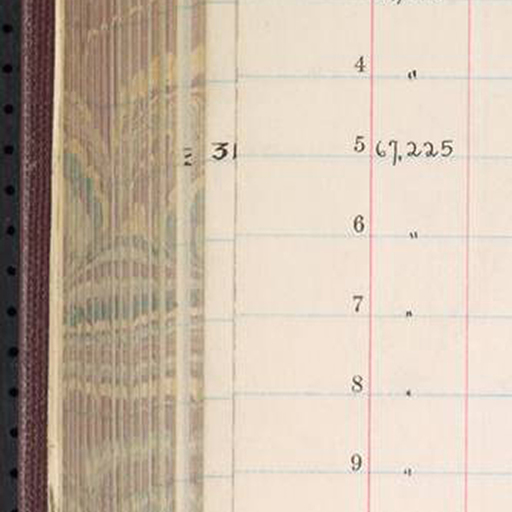 4 "
31 5 67,225
6 "
7 "
8 "
9 "